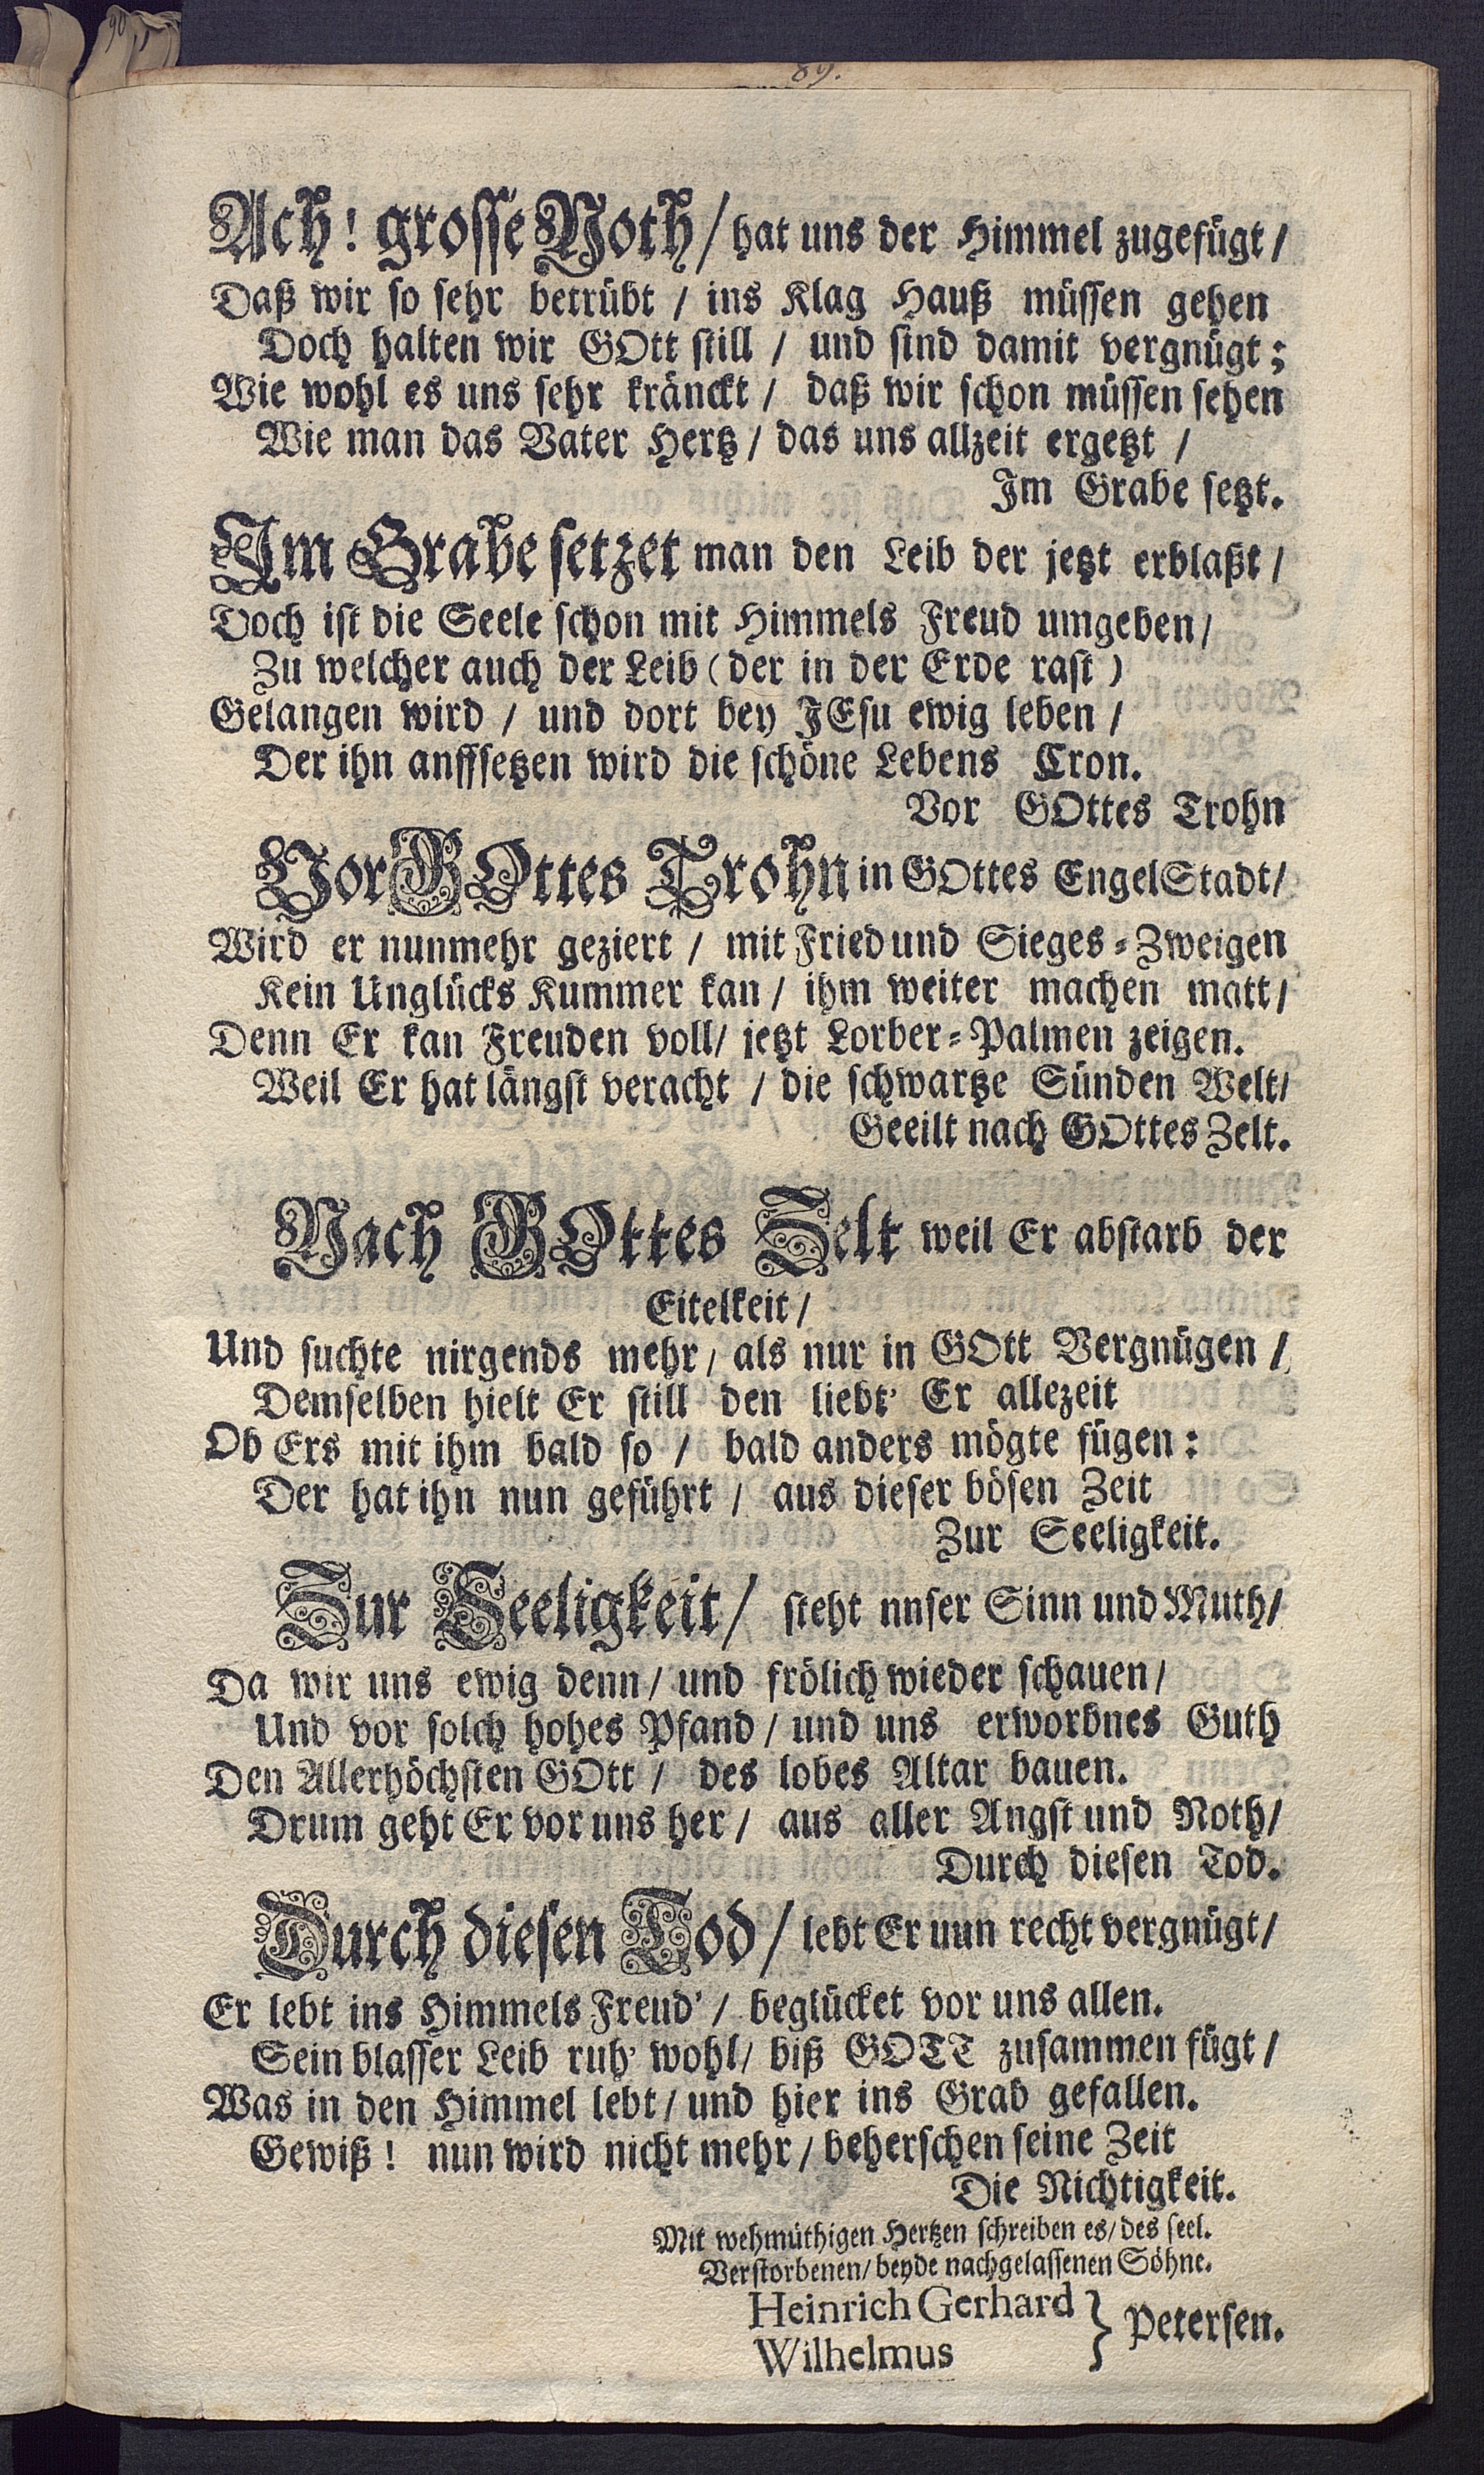 89.
Ach! grosse Noth / hat uns der Himmel zugefügt /
Daß wir so sehr betrübt / ins Klag Hauß müssen gehen
Doch halten wir GOtt still / und sind damit vergnügt;
Wie wohl es uns sehr kränckt / daß wir schon müssen sehen
Wie man das Vater Hertz / das uns allzeit ergetzt /
Im Grabe setzt.
Im Grabe setzet man den Leib der jetzt erblaßt /
Doch ist die Seele schon mit Himmels Freud umgeben /
Zu welcher auch der Leib (der in der Erde rast)
Gelangen wird / und dort bey JEsu ewig leben /
Der ihn anffsetzen wird die schöne Lebens Cron.
Vor GOttes Trohn
Vor GOttes Trohn in GOttes EngelStadt /
Wird er nunmehr geziert / mit Fried und Sieges-Zweigen
Kein Unglücks Kummer kan / ihm weiter machen matt /
Denn Er kan Freuden voll / jetzt Lorber-Palmen zeigen.
Weil Er hat längst veracht / die schwartze Sünden Welt /
Geeilt nach GOttes Zelt.
Nach GOttes Zelt weil Er abstarb der
Eitelkeit /
Und suchte nirgends mehr / als nur in GOtt Vergnügen /
Demselben hielt Er still den liebt' Er allezeit
Ob Ers mit ihm bald so / bald anders mögte fügen:
Der hat ihn nun geführt / aus dieser bösen Zeit
Zur Seeligkeit.
Zur Seeligkeit / steht nnser Sinn und Muth /
Da wir uns ewig denn / und frölich wieder schauen /
Und vor solch hohes Pfand / und uns erworbnes Guth
Den Allerhöchsten GOtt / des lobes Altar bauen.
Drum geht Er vor uns her / aus aller Angst und Noth /
Durch diesen Tod.
Durch diesen Tod / lebt Er nun recht vergnügt /
Er lebt ins Himmels Freud' / beglücket vor uns allen.
Sein blasser Leib ruh' wohl / biß GOTT zusammen fügt /
Was in den Himmel lebt / und hier ins Grab gefallen.
Gewiß! nun wird nicht mehr / beherschen seine Zeit
Die Nichtigkeit.
Mit wehmüthigen Hertzen schreiben es / des seel.
Verstorbenen / beyde nachgelassenen Söhne.
Heinrich Gerhard } Petersen.
Wilhelmus